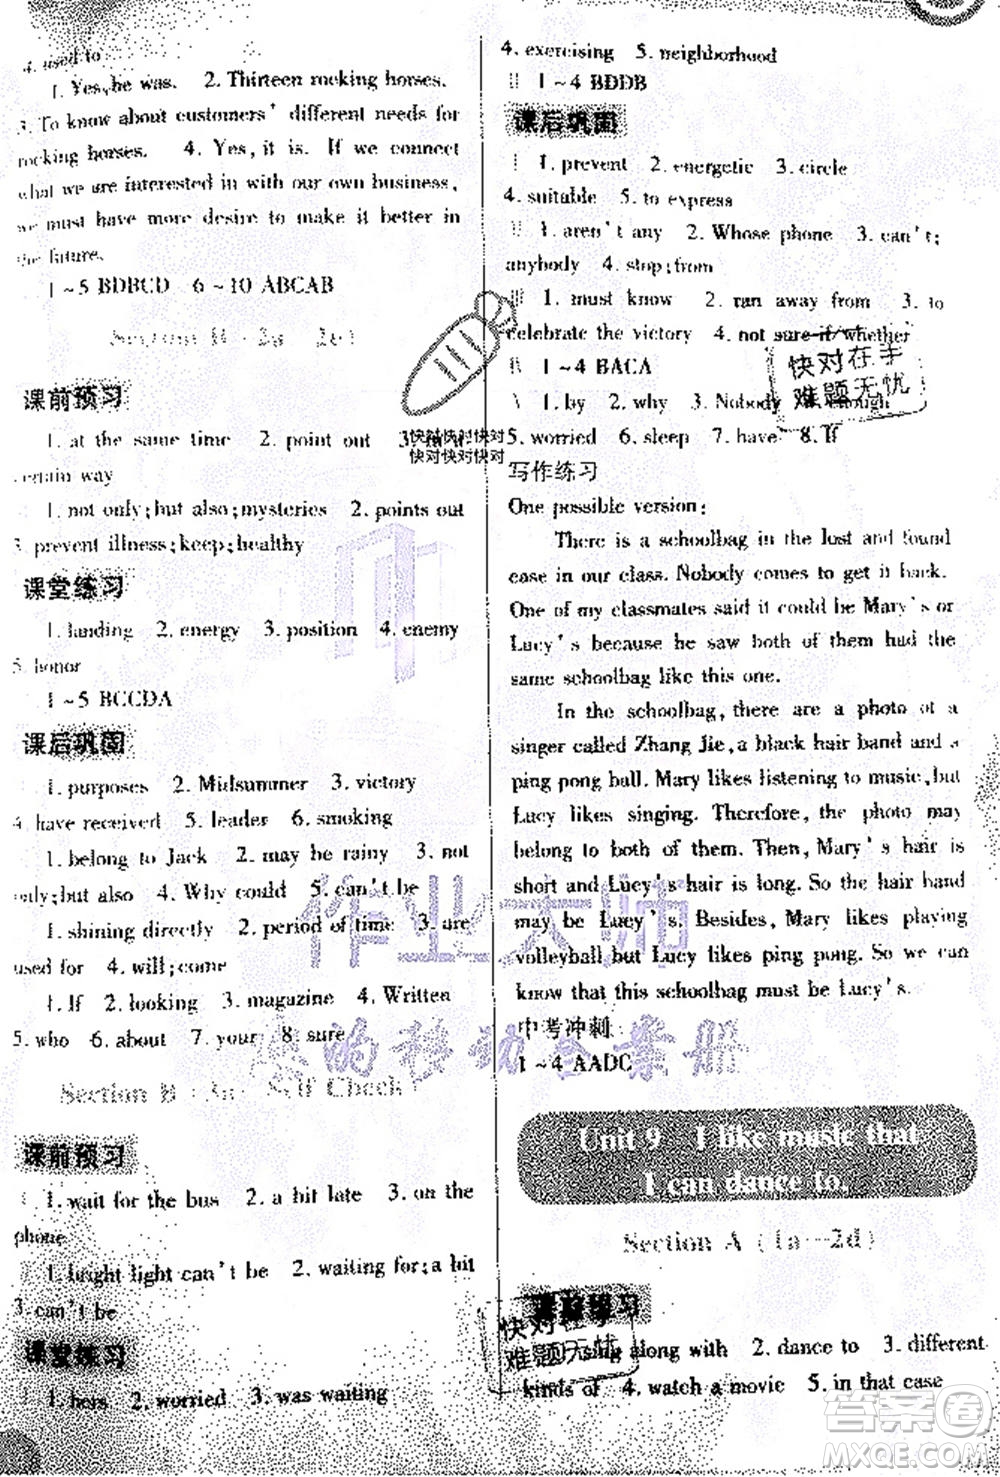 4. used to
1. Yes, he was. 2. Thirteen rocking horses.
3. To know about customers' different needs for
rocking horses. 4. Yes, it is. If we connect
what we are interested in with our own business,
we must have more desire to make it better in
the future.
1~5 BDBCD 6~10 ABCAB
Section B (2a—2e)
课前预习
1. at the same time 2. point out 3.
certain way
1. not only;but also;mysteries 2. points out
3. prevent illness;keep;healthy
课堂练习
1. landing 2. energy 3. position 4. enemy
5. honor
1~5 BCCDA
课后巩固
1. purposes 2. Midsummer 3. victory
4. have received 5. leader 6. smoking
1. belong to Jack 2. may be rainy 3. not
only;but also 4. Why could 5. can't be
1. shining directly 2. period of time 3. are
used for 4. will;come
1. If 2. looking 3. magazine 4. Written
5. who 6. about 7. your 8. sure
Section B (3a—Self Check)
课前预习
1. wait for the bus 2. a bit late 3. on the
phone
1. bright light can't be 2. waiting for;a bit
3. can't be
课堂练习
1. hers 2. worried 3. was waiting
4. exercising 5. neighborhood
1~4 BDDB
课后巩固
1. prevent 2. energetic 3. circle
4. suitable 5. to express
1. aren't any 2. Whose phone 3. can't;
anybody 4. stop;from
1. must know 2. ran away from 3. to
celebrate the victory 4. not sure if/whether
1~4 BACA
1. by 2. why 3. Nobody 4. enough
5. worried 6. sleep 7. have 8. If
写作练习
One possible version:
There is a schoolbag in the lost and found
case in our class. Nobody comes to get it back.
One of my classmates said it could be Mary's or
Lucy's because he saw both of them had the
same schoolbag like this one.
In the schoolbag, there are a photo of a
singer called Zhang Jie, a black hair band and a
ping pong ball. Mary likes listening to music, but
Lucy likes singing. Therefore, the photo may
belong to both of them. Then, Mary's hair is
short and Lucy's hair is long. So the hair band
may be Lucy's. Besides, Mary likes playing
volleyball but Lucy likes ping pong. So we can
know that this schoolbag must be Lucy's.
中考冲刺
1~4 AADC
Unit 9 I like music that
I can dance to.
Section A (1a—2d)
课前预习
1. sing along with 2. dance to 3. different
kinds of 4. watch a movie 5. in that case
快对快对快对
快对快对快对
快对在手
难题无忧
作业大师
的移动答案册
快对在手
难题无忧
答案圈
MXQE.COM